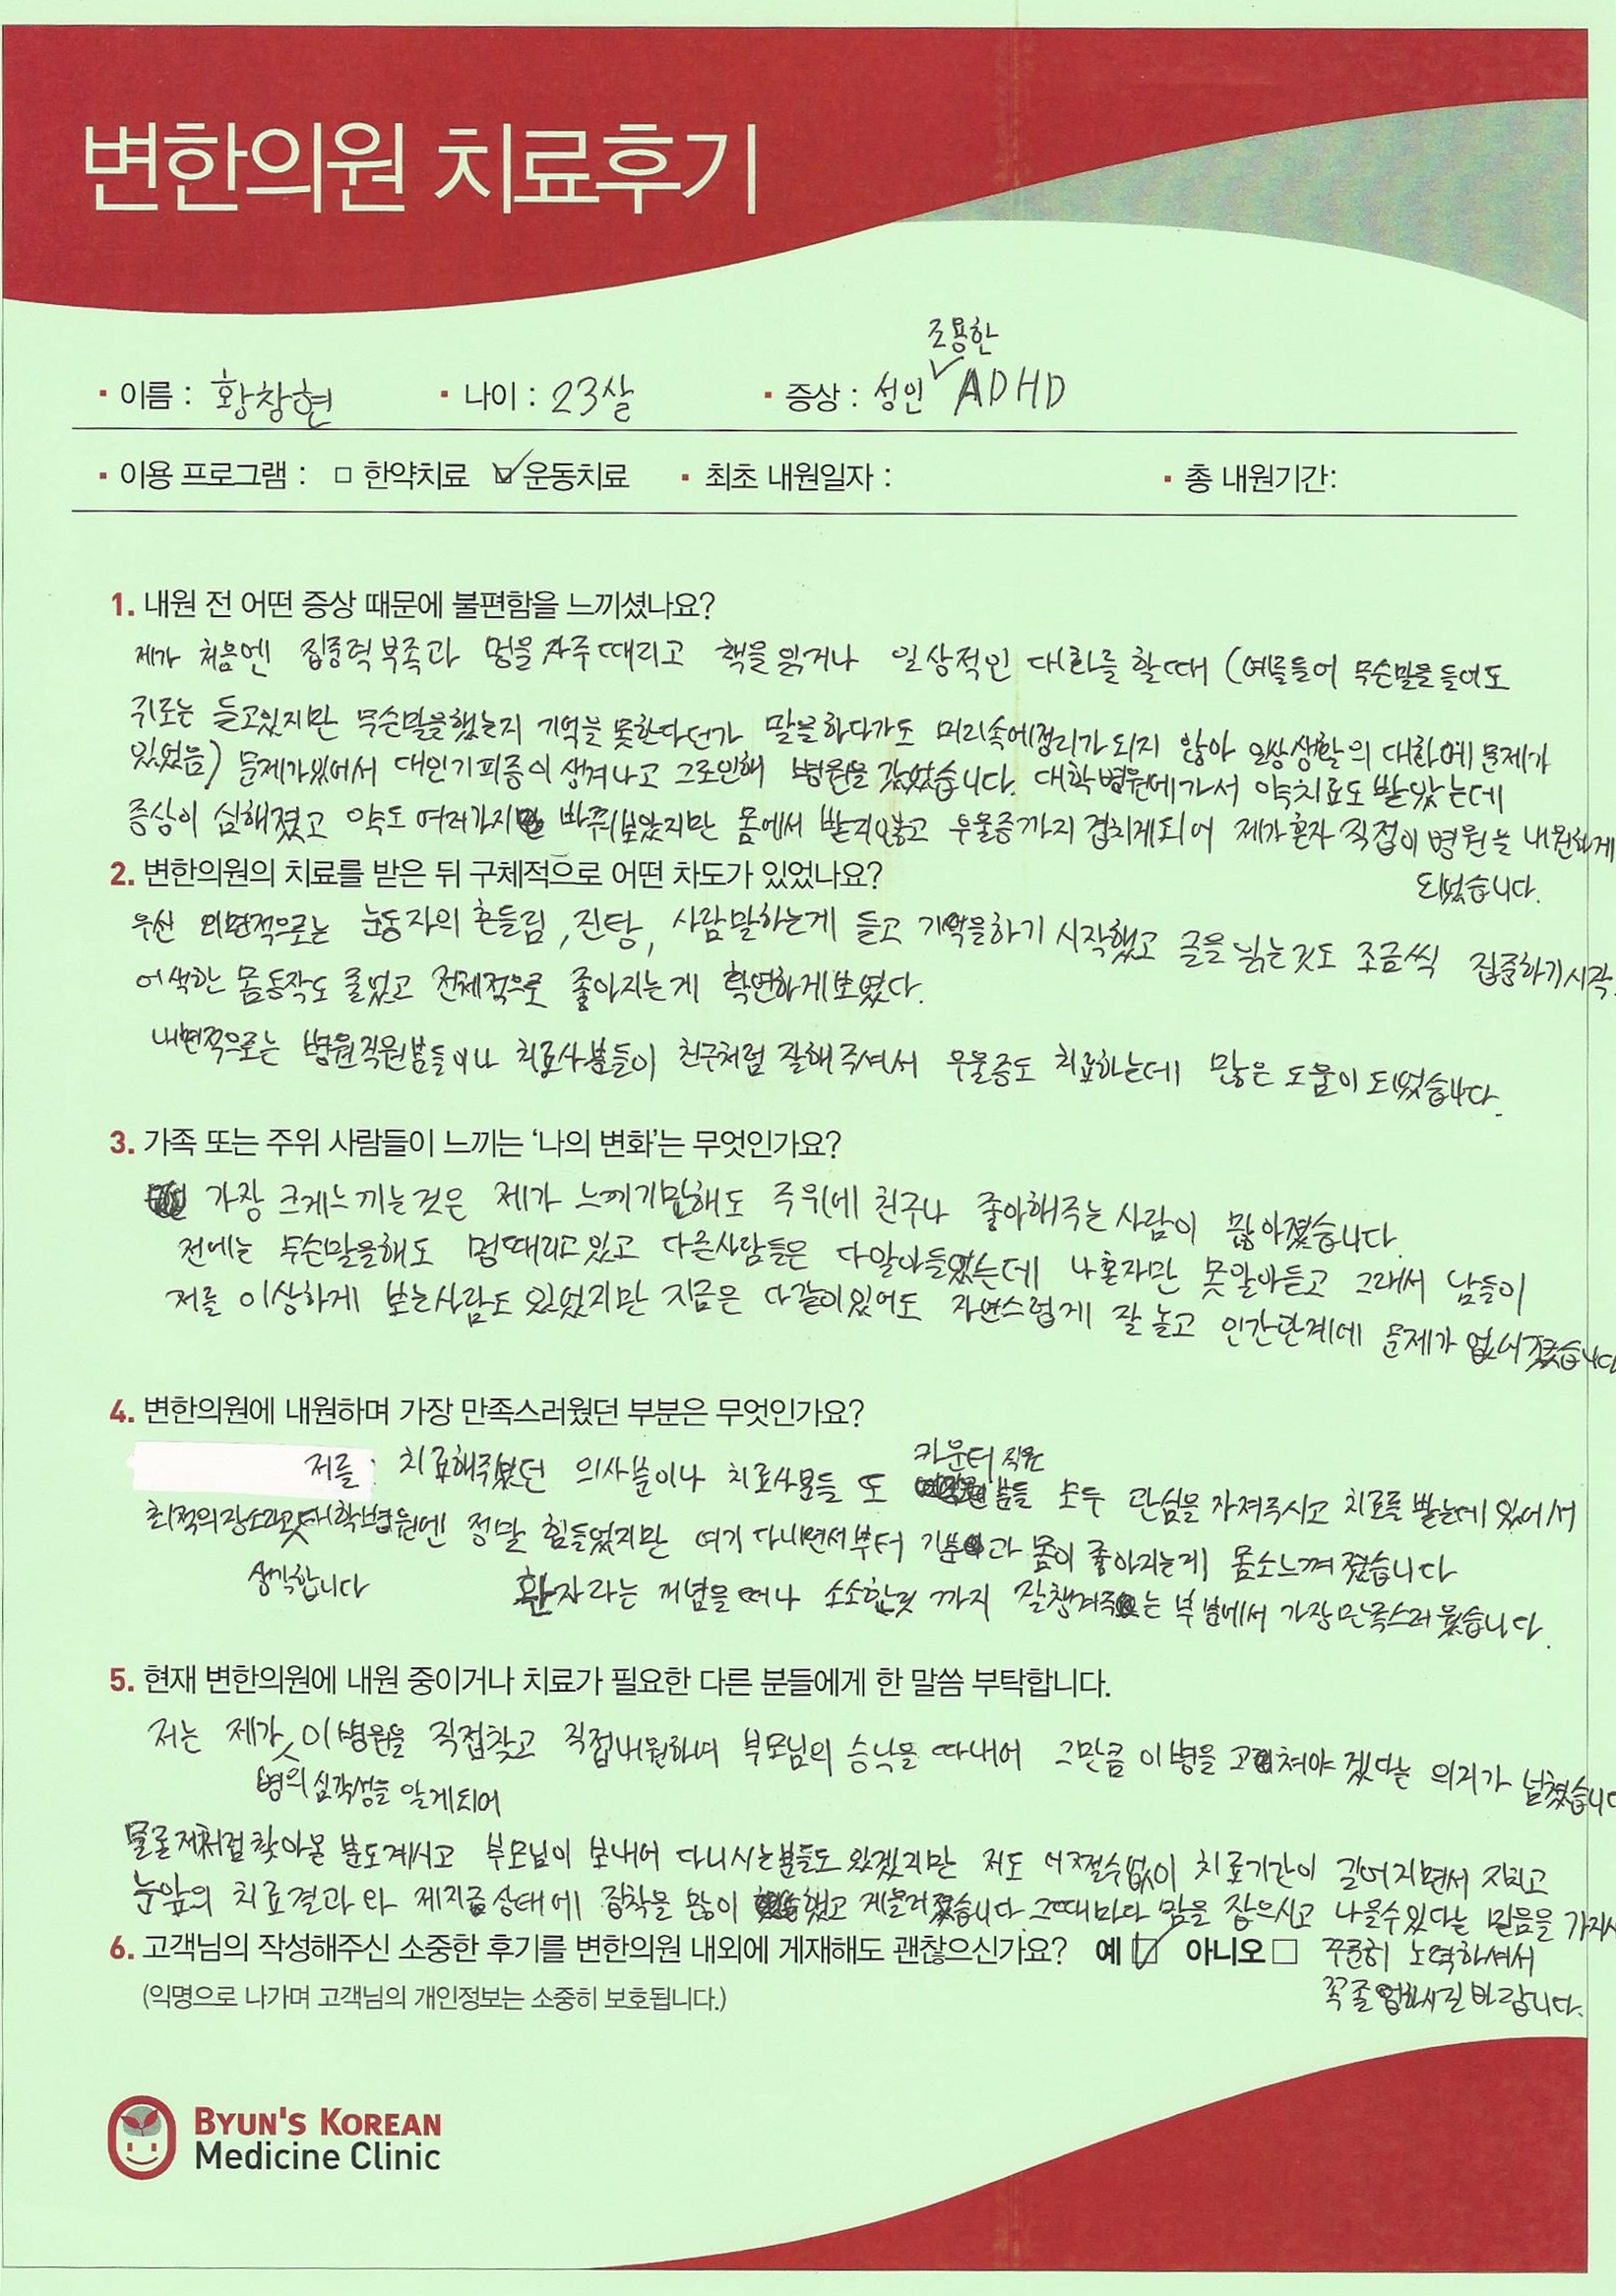 변한의원 치료후기
조용한
· 이름 : 황창현 · 나이 : 23살 · 증상 : 성인 ✓ ADHD
· 이용 프로그램 : □ 한약치료 ☑ 운동치료 · 최초 내원일자 : · 총 내원기간:
1. 내원 전 어떤 증상 때문에 불편함을 느끼셨나요?
제가 처음엔 집중력부족과 멍을 자주때리고 책을 읽거나 일상적인 대화를 할때 (예를들어 무슨말을들어도
귀로는 듣고있지만 무슨말을했는지 기억을 못한다던가 말을하다가도 머리속에정리가되지 않아 일상생활의 대화에 문제가
있었음) 문제가있어서 대인기피증이 생겨나고 그로인해 병원을 갔었습니다. 대학병원에가서 약치료도받았는데
증상이 심해졌고 약도 여러가지 바꿔보았지만 몸에서 받지않고 우울증까지 겹치게되어 제가혼자 직접이 병원을 내원하게
2. 변한의원의 치료를 받은 뒤 구체적으로 어떤 차도가 있었나요?
되었습니다.
우선 외면적으로는 눈동자의 흔들림, 진땀, 사람말하는게 듣고 기억을하기 시작했고 글을 읽는것도 조금씩 집중하기시작
어색한 몸동작도 줄었고 전체적으로 좋아지는게 확연하게보였다.
내면적으로는 병원직원분들이나 치료사분들이 친구처럼 잘해주셔서 우울증도 치료하는데 많은 도움이 되었습니다.
3. 가족 또는 주위 사람들이 느끼는 ‘나의 변화’는 무엇인가요?
가장 크게느끼는것은 제가 느끼기만해도 주위에 친구나 좋아해주는사람이 많아졌습니다.
전에는 무슨말을해도 멍때리고있고 다른사람들은 다알아들었는데 나혼자만 못알아듣고 그래서 남들이
저를 이상하게 보는사람도 있었지만 지금은 다같이있어도 자연스럽게 잘놀고 인간관계에 문제가 없어졌습니다
4. 변한의원에 내원하며 가장 만족스러웠던 부분은 무엇인가요?
카운터 직원
저를 치료해주셨던 의사분이나 치료사분들 또 분들 모두 관심을 가져주시고 치료를 받는데 있어서
최적의장소라고 대학병원엔 정말 힘들었지만 여기 다니면서부터 기분과 몸이 좋아지는게 몸소느껴졌습니다
생각합니다 환자라는 개념을떠나 소소한것까지 잘챙겨주는 부분에서 가장만족스러웠습니다.
5. 현재 변한의원에 내원 중이거나 치료가 필요한 다른 분들에게 한 말씀 부탁합니다.
저는 제가 이병원을 직접찾고 직접내원하여 부모님의 승낙을 따내어 그만큼 이병을 고쳐야겠다는 의지가 넘쳤습니다
병의심각성을 알게되어
물론저처럼찾아온 분도계시고 부모님이 보내어 다니시는분들도 있겠지만 저도 어쩔수없이 치료기간이 길어지면서 지치고
눈앞의 치료결과와 제지금상태에 집착을 많이 했고 게을러졌습니다 그때마다 맘을 잡으시고 나을수있다는 믿음을 가지시
6. 고객님의 작성해주신 소중한 후기를 변한의원 내외에 게재해도 괜찮으신가요? 예 ☑ 아니오 □ 꾸준히 노력하셔서
(익명으로 나가며 고객님의 개인정보는 소중히 보호됩니다.) 꼭졸업하시길 바랍니다.
BYUN'S KOREAN
Medicine Clinic